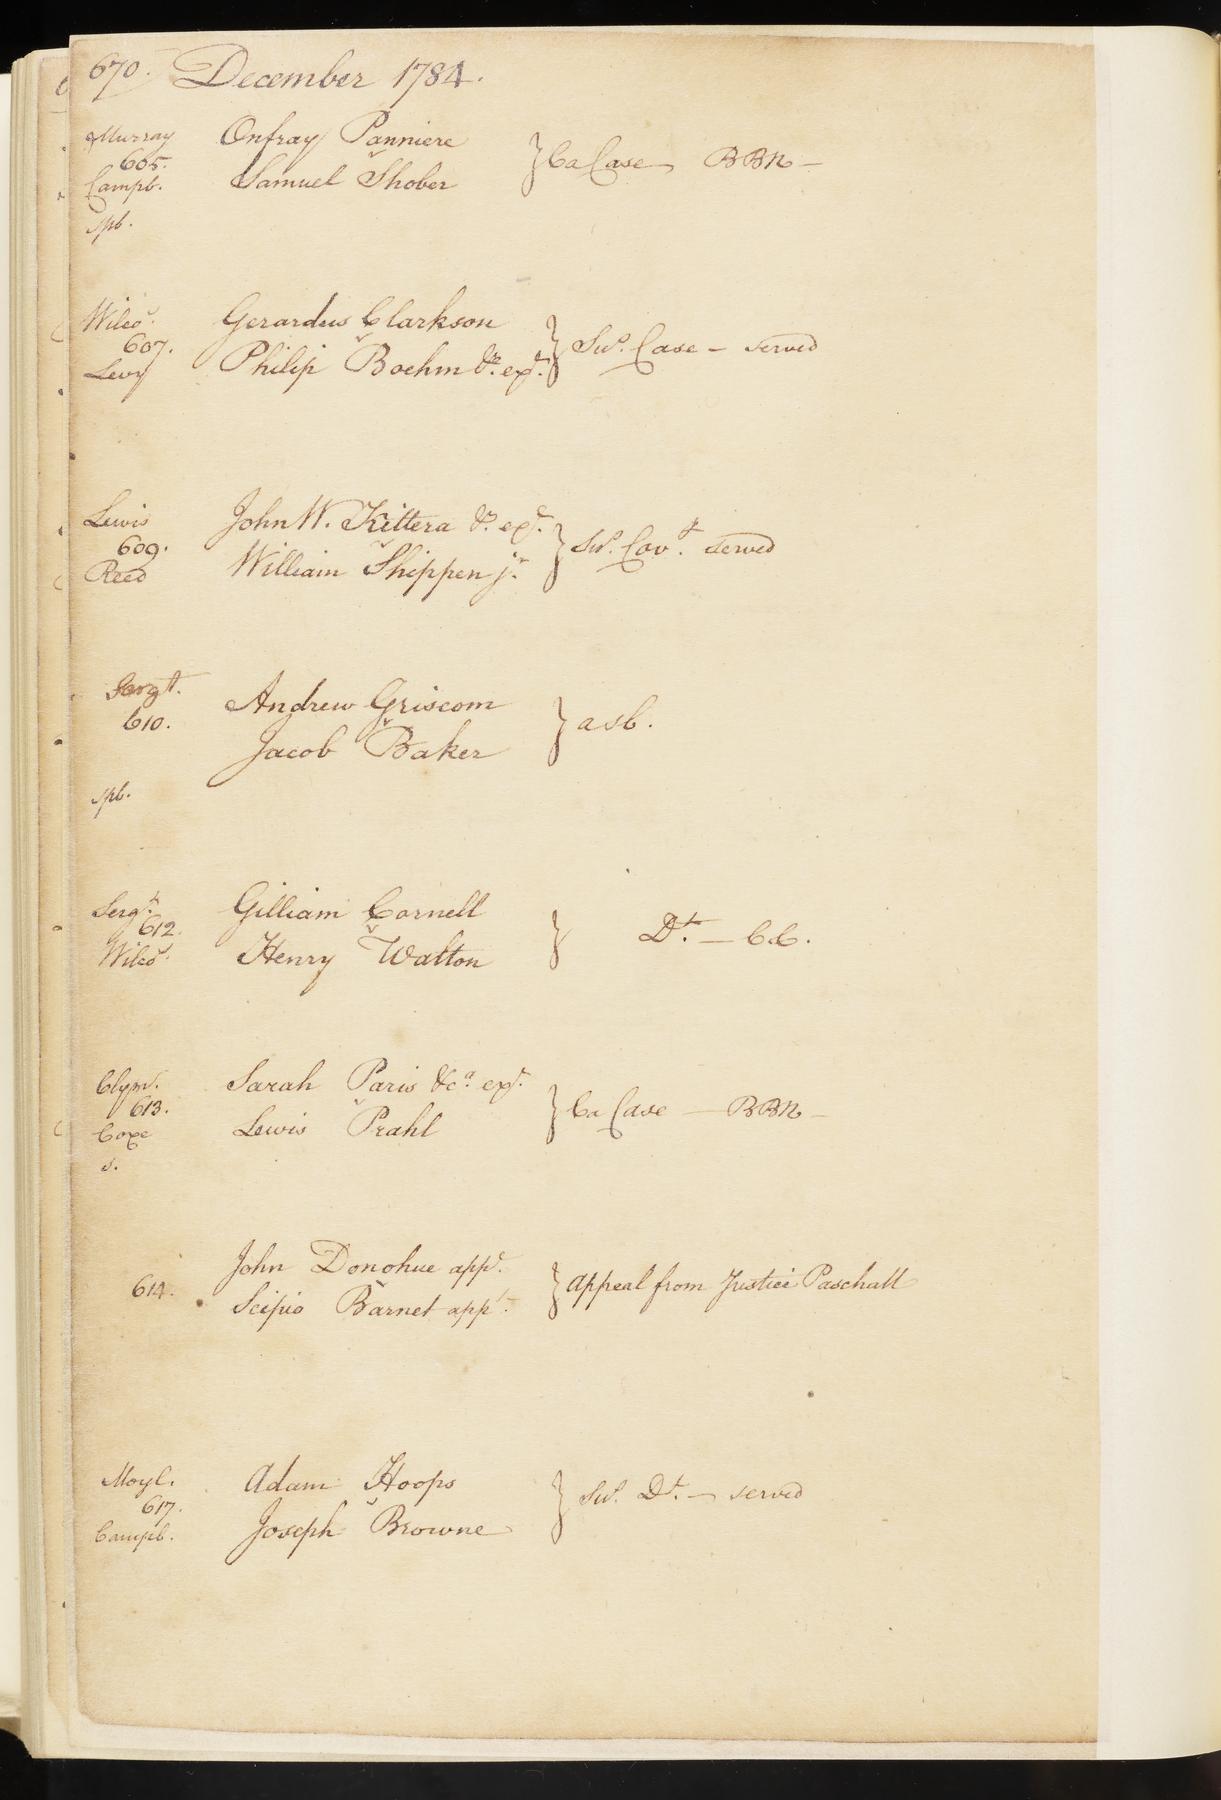 670. December 1784.
Murray Onfray Panniere
605. v } Ca Case BBN —
Campb. Samuel Shober
spb.
Wilcs. Gerardus Clarkson
607. v } Sus. Case — served
Levy Philip Boehm &c. exrs.
Lewis John W. Kittera &c. exr.
609. v } Sus. Covt. served
Reed William Shippen jr.
Sergt. Andrew Griscom
610. v } asb.
Jacob Baker
spb.
Sergt. Gilliam Cornell
612. v } Dt. — C.C.
Wilcs. Henry Walton
Clym. Sarah Paris &ca. exr.
613. v } Ca Case — BBN —
Coxe Lewis Prahl
s.
John Donohue appt.
614. v } Appeal from Justice Paschall
Scipio Barnet appt.
Moyl. Adam Hoops
617. v } Sus. Dt. — served
Campb. Joseph Browne